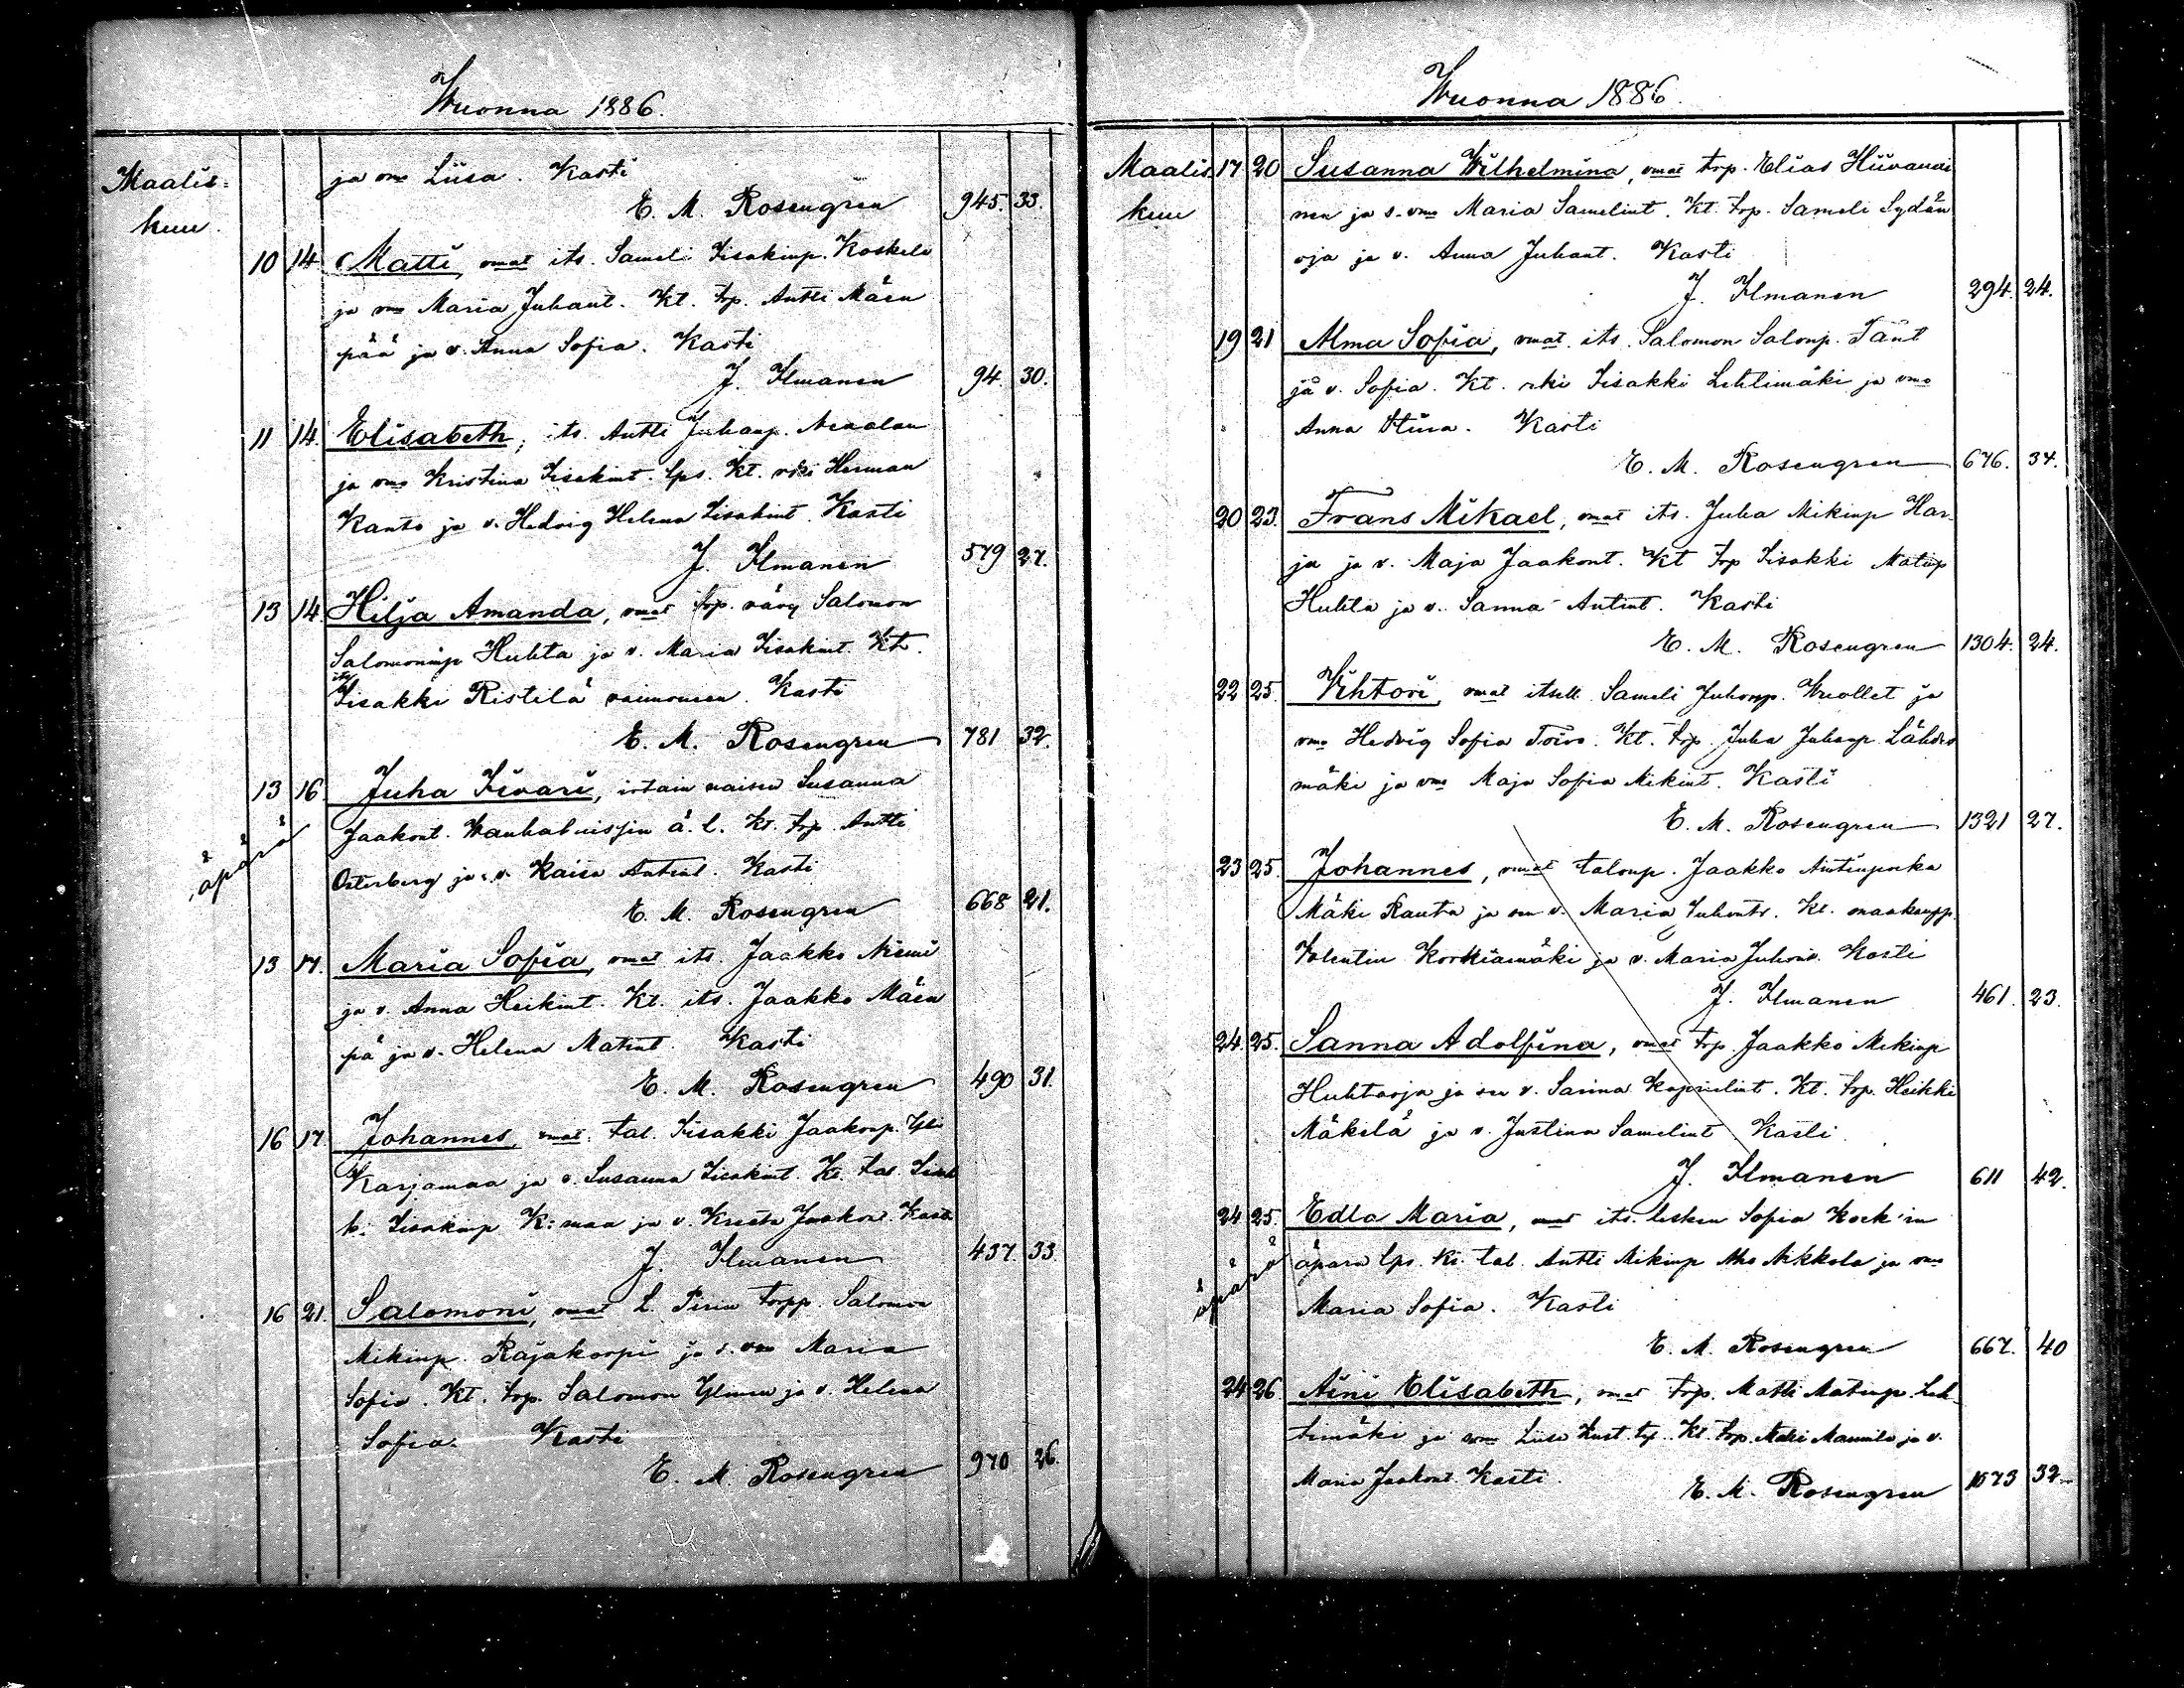 Wuonna 1886.
Maalis=
kuu.
ja vmo Liisa. Kasti
E. M. Rosengren 945. 33.
10 14 Matti, vmat its. Sameli Iisakinp. Koskela
ja vmo Maria Juhant. Kt. trp. Antti Mäen
pää ja v. Anna Sofia. Kasti
J. Ilmanen 94 30.
11 14. Elisabeth, its. Antti Juhanp.
ja vmo Kristina Iisakint. lps. Kt. rki Herman
Kanto ja v. Hedvig Helena Iisakint. Kasti
J. Ilmanen 579 27.
13 14 Hilja Amanda, vmat trp. vävy Salomon
Salomoninp Huhta ja v. Maria Iisakint. Kt.
its
Iisakki Ristilä vaimoineen. Kasti
E. M. Rosengren 781 32.
13 16 Juha Iivari, irtain naisen Susanna
Jaakont. ä. l. Kt. trp. Antti
äpärä
Österberg ja v. Kaisa Antint. Kasti
E. M. Rosengren 668 21.
13 17. Maria Sofia, vmat its. Jaakko Niemi
ja v. Anna Heikint. Kt. its. Jaakko Mäen
pä ja v. Helena Matint. Kasti
E. M. Rosengren 490 31.
16 17. Johannes, vmat. tal. Iisakki Jaakonp. Yli
Karjamaa ja v. Susanna Iisakint. Kt. tal. Iisak
ki Iisakinp K:maa ja v. Jaakont. Kasti
J. Ilmanen 437. 33.
16 21. Salomoni, vmat L. Pirin torpp. Salomon
Mikinp. Rajakorpi ja s. vmo Maria
Sofia. Kt. trp. Salomon Ylinen ja v. Helena
Sofia. Kasti
E. M. Rosengren 970 26.
Wuonna 1886.
Maalis
kuu
17 20 Susanna Wilhelmina, vmat trp. Elias
nen ja s. vmo Maria Samelint. Kt. trp. Sameli Sydän
oja ja v. Anna Juhant. Kasti
J. Ilmanen 294. 24.
19 21 Alma Sofia, vmat. its. Salomon Salonp. Tänt
jä v. Sofia. Kt. rki Iisakki Lehtimäki ja vmo
Anna Stina. Kasti
E. M. Rosengren 676. 34.
20 23. Frans Mikael, vmat its. Juha Mikinp Har-
ju ja v. Maja Jaakont. Kt trp Iisakki Matinp
Huhta ja v. Sanna Antint. Kasti
E. M. Rosengren 1304. 24.
22 25. Vihtori, vmat itsell. Sameli Juhonp. Wuollet ja
vmo Hedvig Sofia Toivo. Kt. trp. Juha Juhanp Lähdes
mäki ja vmo Maja Sofia Mikint. Kasti
E. M. Rosengren 1321 27.
23 25. Johannes, vmat talonp. Jaakko Antinpoika
Mäki Rauta ja sen v. Maria Juhontr. Kt. maakaupp.
Valentin Korkiamäki ja v. Maria Juhont. Kasti
J. Ilmanen 461. 23.
24. 25. Sanna Adolfina, vmat trp. Jaakko Mikinp
Huhtaoja ja sen v. Sanna Kaprielint. Kt. trp. Heikki
Mäkelä ja v. Justina Samelint. Kasti.
J. Ilmanen 611 42.
24 25. Edla Maria, vmat its. lesken Sofia Kock'in
äpärä
äpara lps. Kt. tal. Antti Mikinp Nikkola ja vmo
Maria Sofia. Kasti
E. M. Rosengren 667. 40
24 26 Aini Elisabeth, vmat trp. Matti Matinp. Leh-
timäki ja vmo Liisa Kust. ty. Kt. trp. Matti Mannila ja v.
Maria Jaakont. Kasti.
E. M. Rosengren 1073 32.